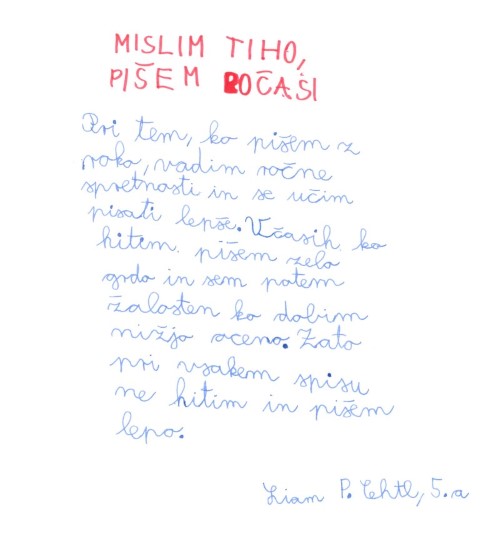 MISLIM TIHO,
PIŠEM POČASI
Pri tem, ko pišem z
roko, vadim ročne
spretnosti in se učim
pisati lepše. Včasih ko
hitim pišem zelo
grdo in sem potem
žalosten ko dobim
nižjo oceno. Zato
pri vsakem spisu
ne hitim in pišem
lepo.
Liam P. 5.a